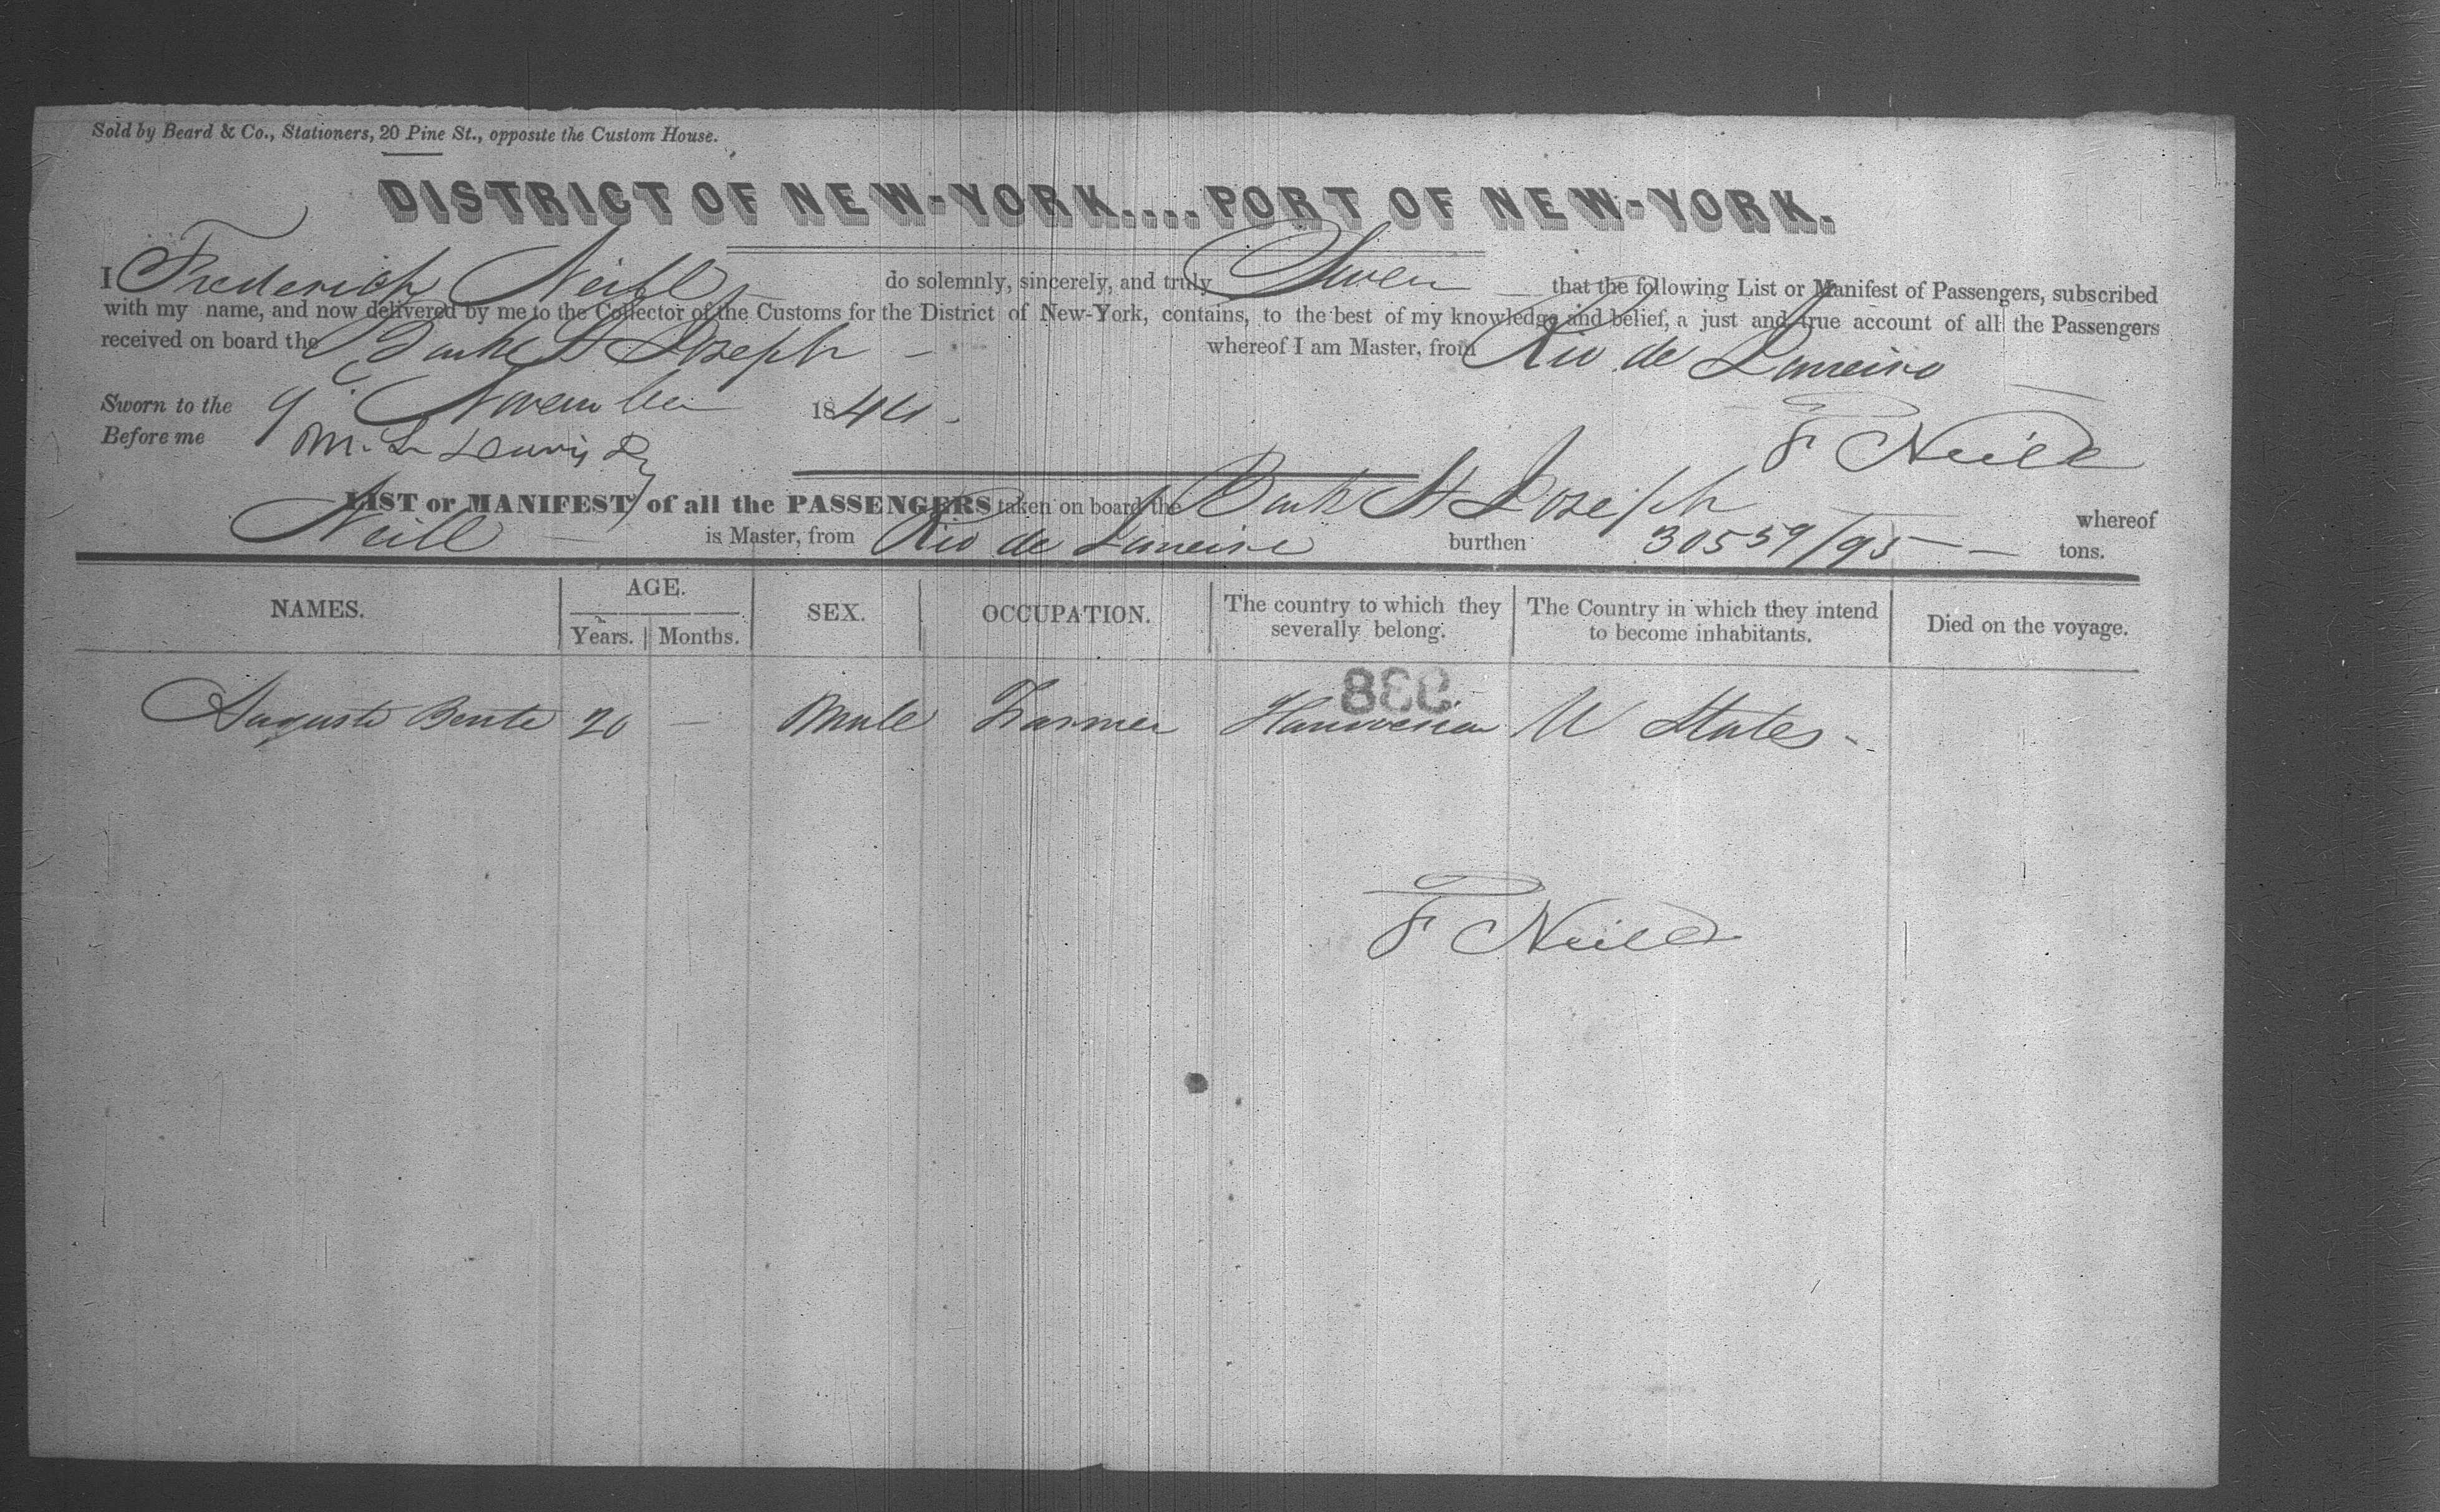 Sold by Beard & Co., Stationers, 20 Pine St., opposite the Custom House.
DISTRICT OF NEW-YORK....PORT OF NEW-YORK.
I Frederick Neill do solemnly, sincerely, and truly Swear that the following List or Manifest of Passengers, subscribed
with my name, and now delivered by me to the Collector of the Customs for the District of New-York, contains, to the best of my knowledge and belief, a just and true account of all the Passengers
received on board the Barke St Joseph whereof I am Master, from Rio de Janeiro
Sworn to the 9 November 1844
Before me M. L. Lewis Dy
F Neill
LIST or MANIFEST of all the PASSENGERS taken on board the Bark St Joseph whereof
Neill is Master, from Rio de Janeiro burthen 305 59/95 tons.
NAMES. AGE. Years. Months. SEX. OCCUPATION. The country to which they severally belong. The Country in which they intend to become inhabitants. Died on the voyage.
938
Auguste Bente 20 — Male Farmer Hanoverian U States
F Neill